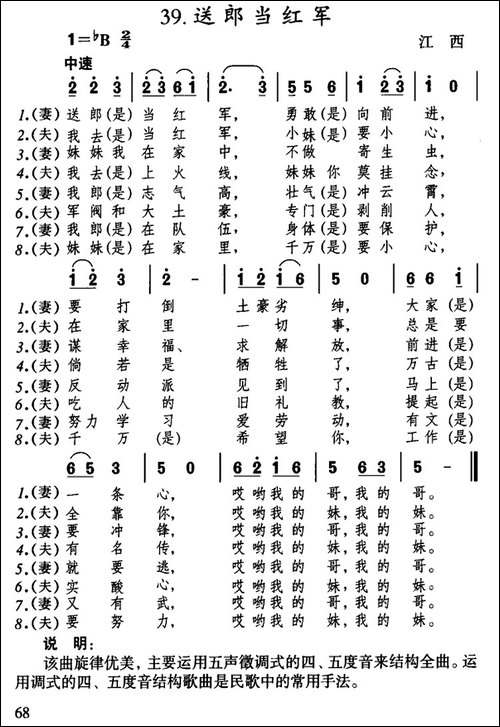 39.送郎当红军
1=♭B 2/4 江西
中速
2 2 3 | 2 3 6 1 | 2. 3 | 5 5 6 | 1 2 3 | 1 0 |
1.(妻)送郎(是)当红军,勇敢(是)向前进,
2.(夫)我去(是)当红军,小妹(是)要小心,
3.(妻)妹妹我在家中,不做寄生虫,
4.(夫)我去(是)上火线,妹妹你莫挂念,
5.(妻)我郎(是)志气高,壮气(是)冲云霄,
6.(夫)军阀和大土豪,专门(是)剥削人,
7.(妻)我郎(是)在队伍,身体(是)要保护,
8.(夫)妹妹(是)在家里,千万(是)要小心,
1 2 3 | 2 - | 1 2 1 6 | 5 0 | 6 6 1 |
1.(妻)要打倒土豪劣绅,大家(是)
2.(夫)在家里一切事,总是要
3.(妻)谋幸福、求解放,前进(是)
4.(夫)倘若是牺牲了,万古(是)
5.(妻)反动派见到了,马上(是)
6.(夫)吃人的旧礼教,提起(是)
7.(妻)努力学习爱劳动,有文(是)
8.(夫)千万(是)希望你,工作(是)
6 5 3 | 5 0 | 6 2 1 6 | 5 6 3 | 5 - ‖
1.(妻)一条心,哎哟我的哥,我的哥。
2.(夫)全靠你,哎哟我的妹,我的妹。
3.(妻)要冲锋,哎哟我的哥,我的哥。
4.(夫)有名传,哎哟我的妹,我的妹。
5.(妻)就要逃,哎哟我的哥,我的哥。
6.(夫)实酸心,哎哟我的妹,我的妹。
7.(妻)又有武,哎哟我的哥,我的哥。
8.(夫)要努力,哎哟我的妹,我的妹。
说明:
该曲旋律优美,主要运用五声徵调式的四、五度音来结构全曲。运
用调式的四、五度音结构歌曲是民歌中的常用手法。
68